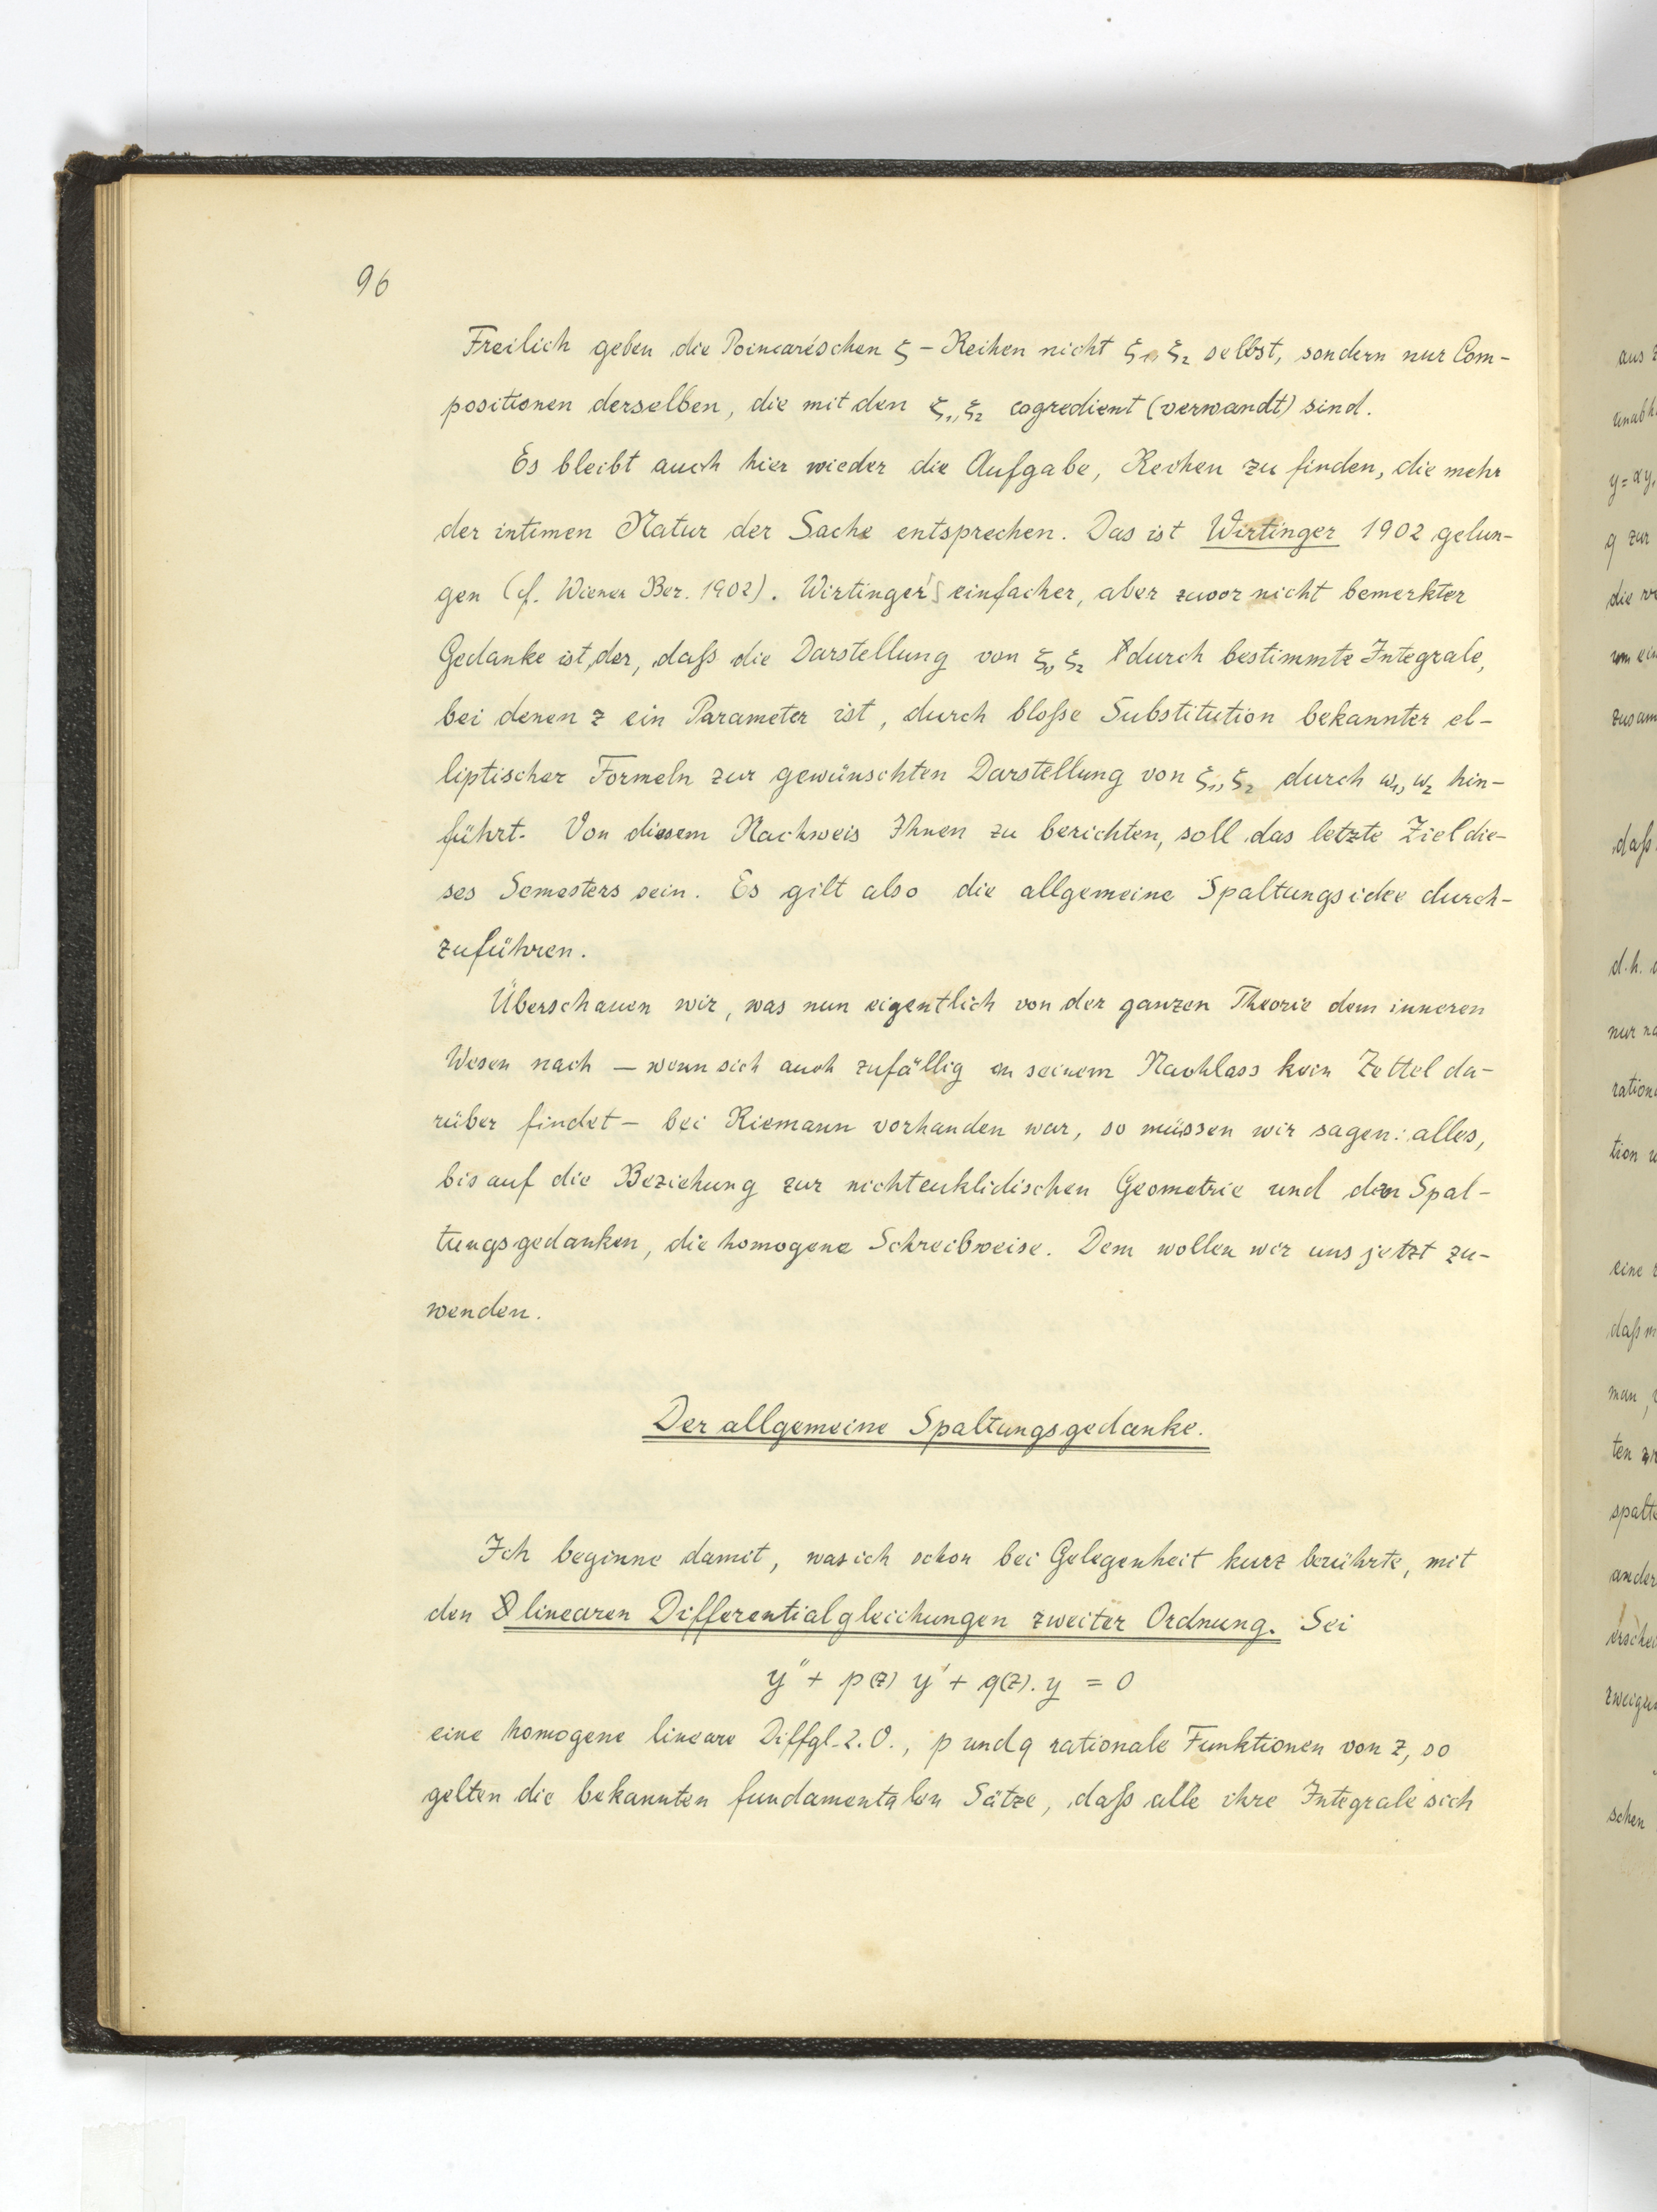 96
Freilich geben die Poincaréschen ζ – Reihen nicht ζ₁, ζ₂ selbst, sondern nur Com-
positionen derselben, die mit den ζ₁, ζ₂ cogredient (verwandt) sind.
Es bleibt auch hier wieder die Aufgabe, Reihen zu finden, die mehr
der intimen Natur der Sache entsprechen. Das ist Wirtinger 1902 gelun-
gen (cf. Wiener Ber. 1902). Wirtinger's einfacher, aber zuvor nicht bemerkter
Gedanke ist der, daß die Darstellung von ζ₁, ζ₂ durch bestimmte Integrale,
bei denen z ein Parameter ist, durch bloße Substitution bekannter el-
liptischer Formeln zur gewünschten Darstellung von ζ₁, ζ₂ durch ω₁, ω₂ hin-
führt. Von diesem Nachweis Ihnen zu berichten, soll das letzte Ziel die-
ses Semesters sein. Es gilt also die allgemeine Spaltungsidee durch-
zuführen.
Überschauen wir, was nun eigentlich von der ganzen Theorie dem inneren
Wesen nach — wenn sich auch zufällig in seinem Nachlass kein Zettel da-
rüber findet — bei Riemann vorhanden war, so müssen wir sagen: alles,
bis auf die Beziehung zur nichteuklidischen Geometrie und den Spal-
tungsgedanken, die homogene Schreibweise. Dem wollen wir uns jetzt zu-
wenden.
Der allgemeine Spaltungsgedanke.
Ich beginne damit, was ich schon bei Gelegenheit kurz berührte, mit
den linearen Differentialgleichungen zweiter Ordnung. Sei
y'' + p(z) y' + q(z). y = 0
eine homogene lineare Diffgl. 2. O., p und q rationale Funktionen von z, so
gelten die bekannten fundamentalen Sätze, daß alle ihre Integrale sich
aus
y = αy₁
q zur
die
zusam
daß
d.h.
nur
ration
tion
eine
daß
man,
ten
spalt
ander
zweig
schen